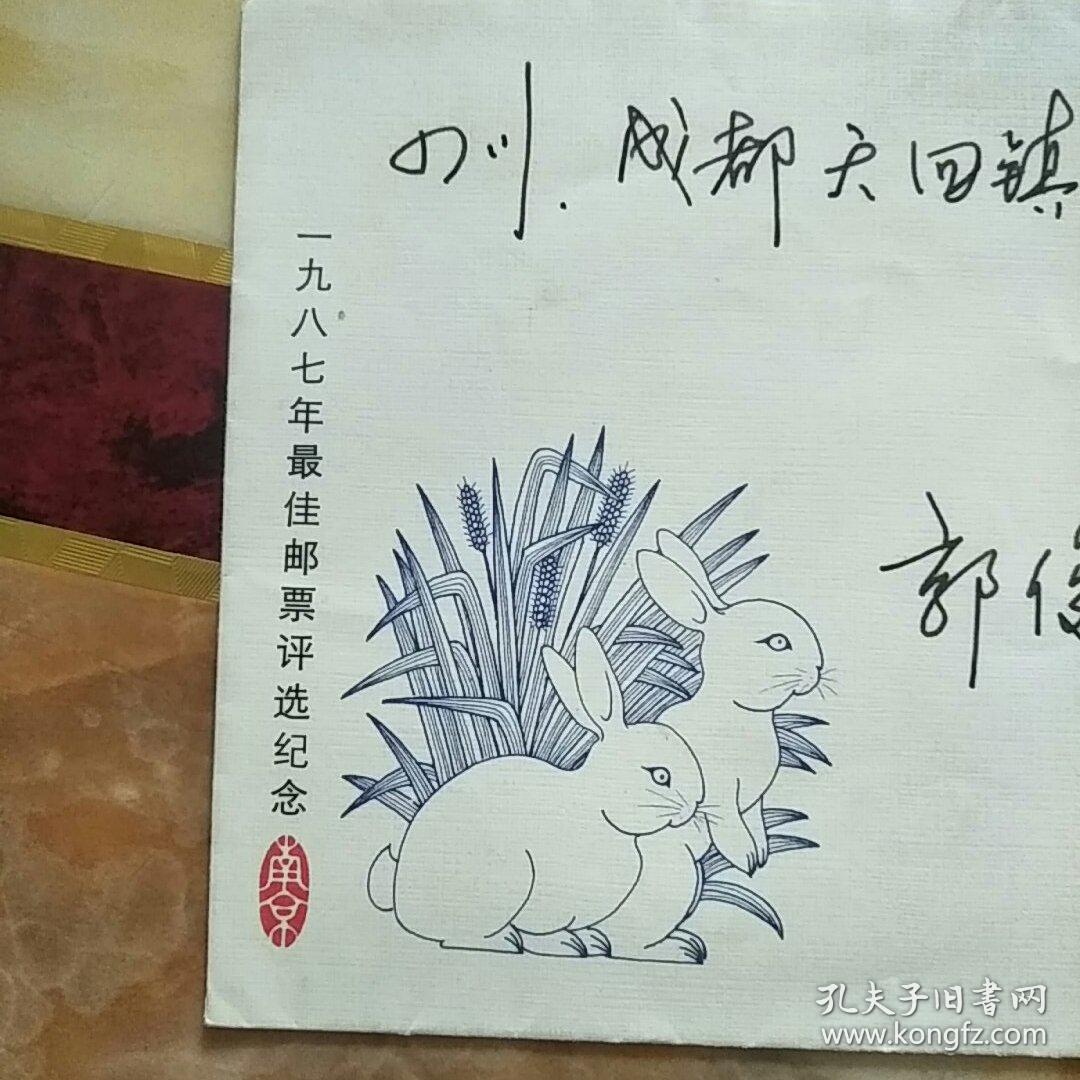 四川.成都天回镇
一九八七年最佳邮票评选纪念
南京
郭俊
孔夫子旧书网
www.kongfz.com